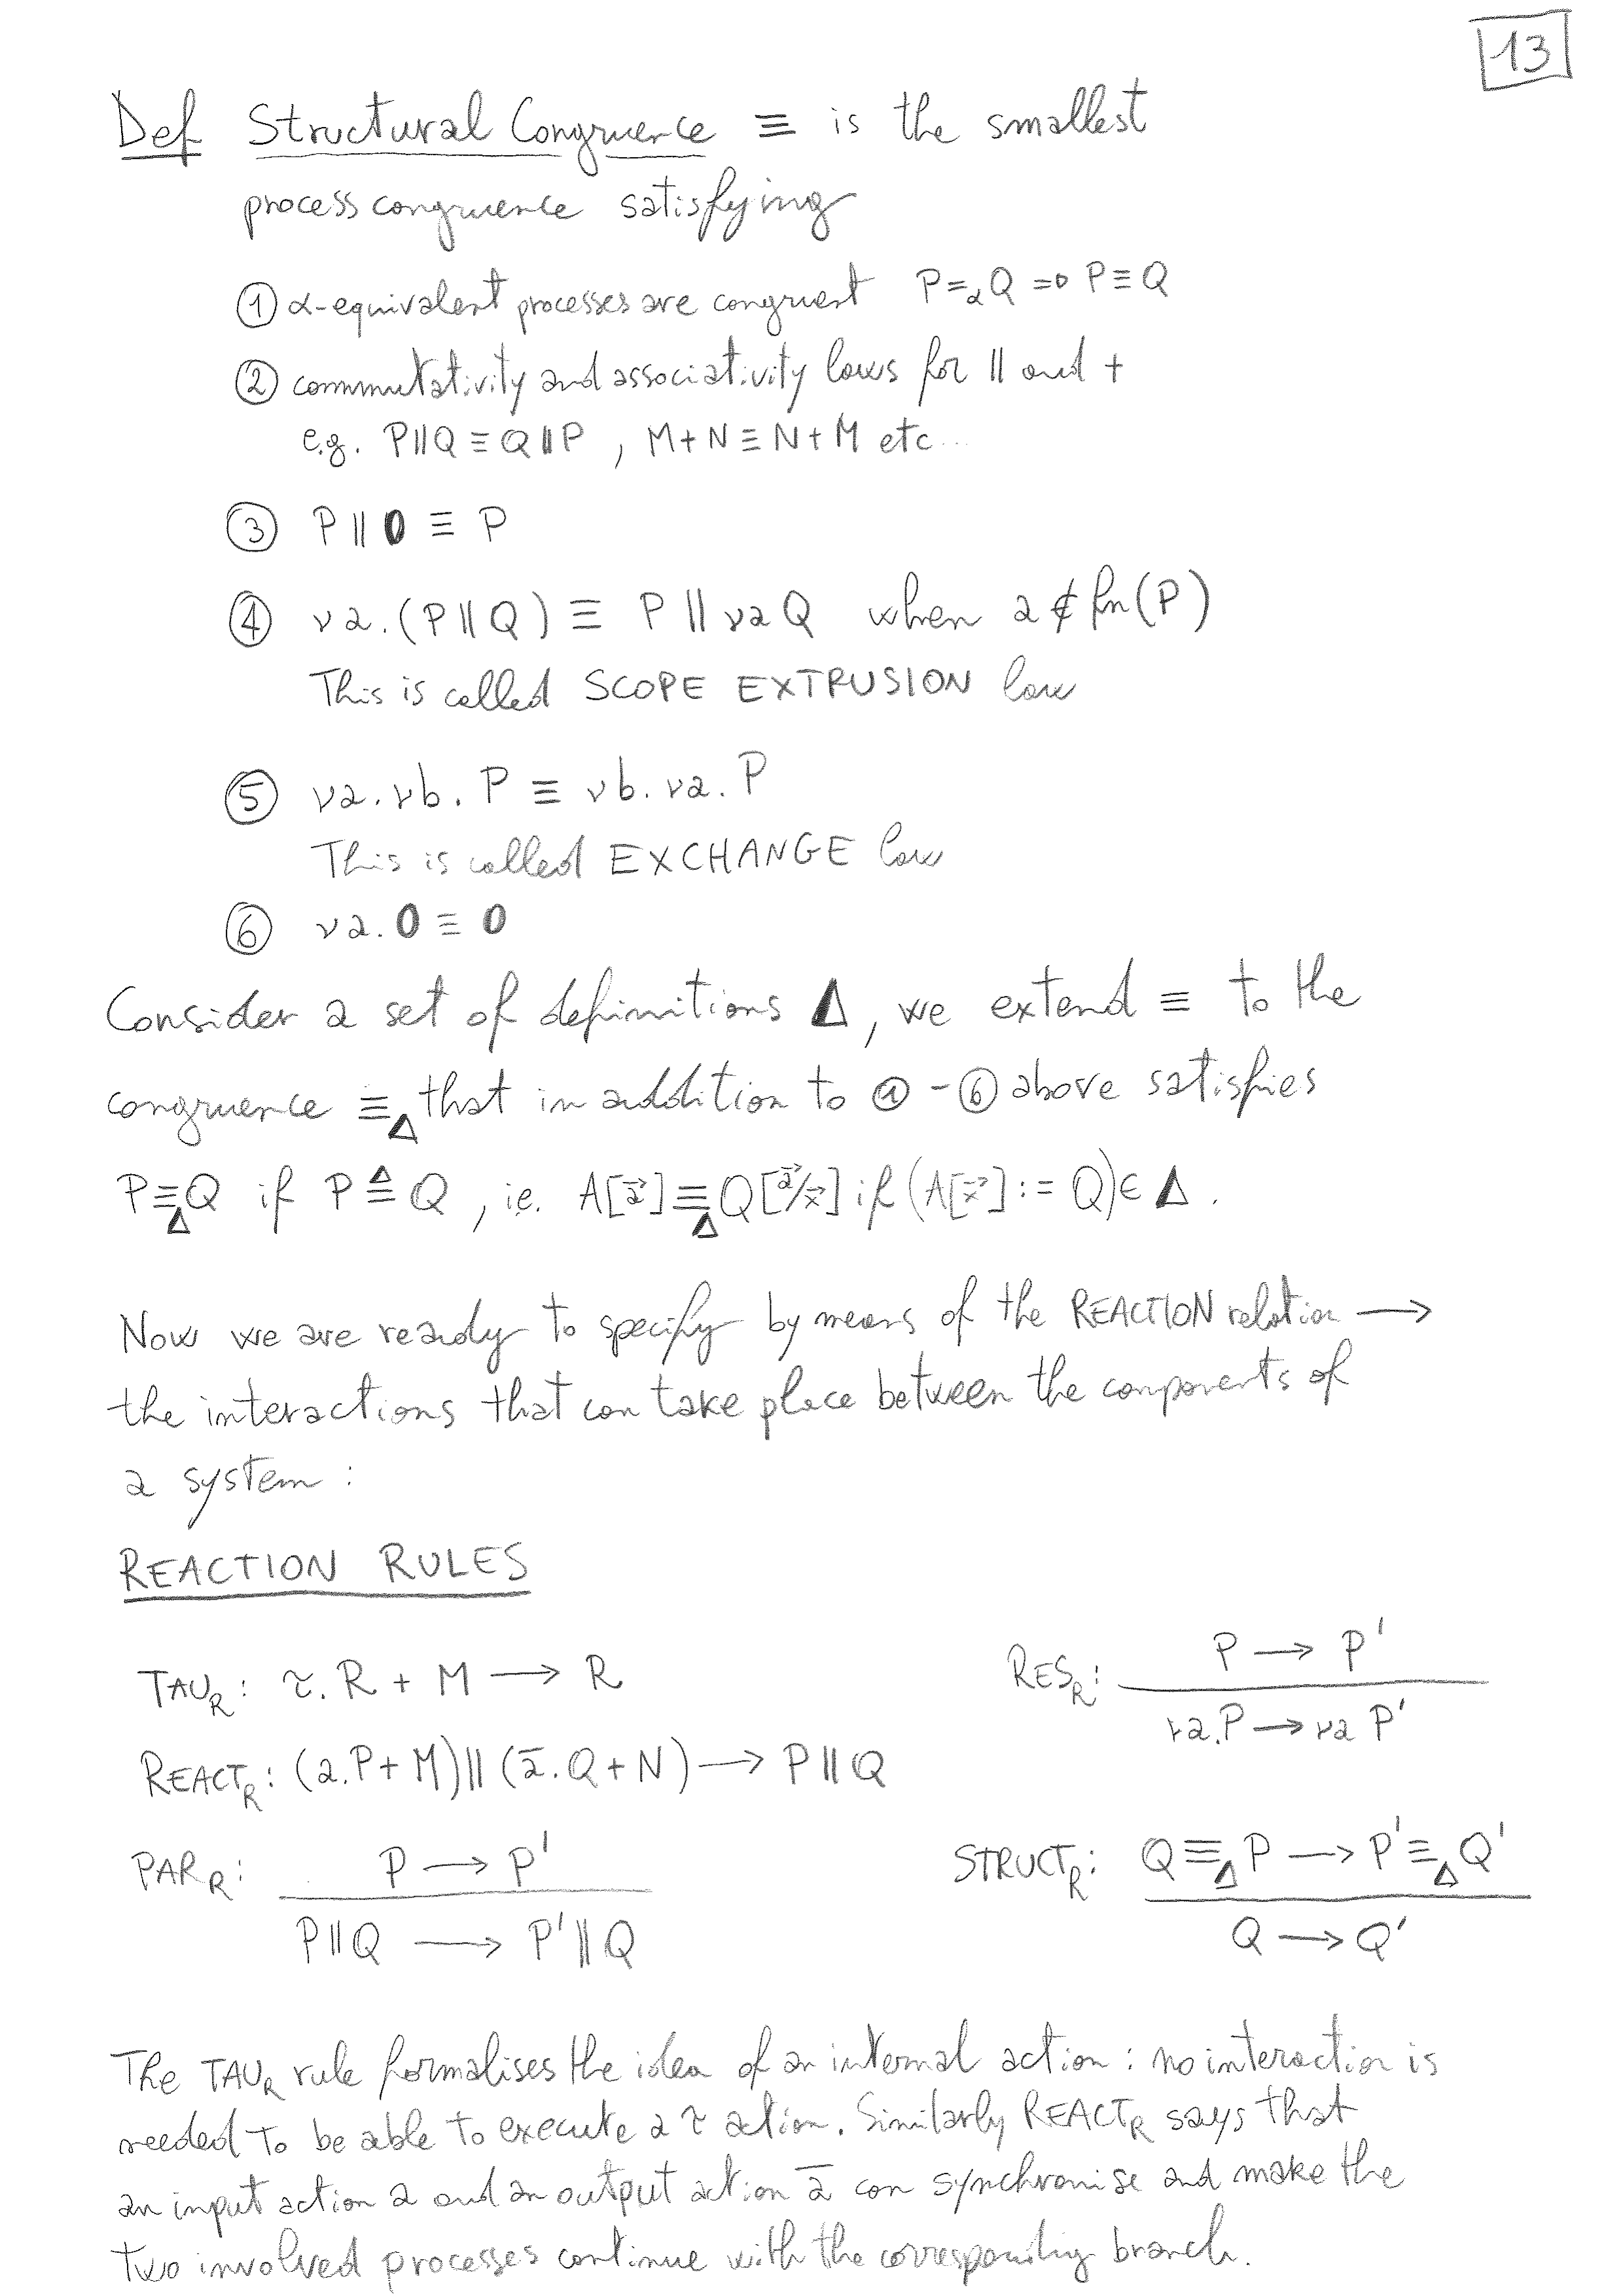 13
Def Structural Congruence ≡ is the smallest
process congruence satisfying
① α-equivalent processes are congruent P =α Q ⇒ P ≡ Q
② commutativity and associativity laws for || and +
e.g. P||Q ≡ Q||P , M+N ≡ N+M etc...
③ P || 0 ≡ P
④ νa.(P||Q) ≡ P || νa Q when a ∉ fn(P)
This is called SCOPE EXTRUSION law
⑤ νa.νb.P ≡ νb.νa.P
This is called EXCHANGE law
⑥ νa.0 ≡ 0
Consider a set of definitions Δ, we extend ≡ to the
congruence ≡Δ that in addition to ① - ⑥ above satisfies
P ≡Δ Q if P ≜ Q , i.e. A[a⃗] ≡Δ Q[a⃗/x⃗] if (A[x⃗] := Q) ∈ Δ.
Now we are ready to specify by means of the REACTION relation →
the interactions that can take place between the components of
a system :
REACTION RULES
TAU_R : τ.R + M → R
RES_R : P → P'
νa.P → νa P'
REACT_R : (a.P + M) || (ā.Q + N) → P || Q
PAR_R : P → P'
P||Q → P'||Q
STRUCT_R : Q ≡Δ P → P' ≡Δ Q'
Q → Q'
The TAU_R rule formalises the idea of an internal action : no interaction is
needed to be able to execute a τ action. Similarly REACT_R says that
an input action a and an output action ā can synchronise and make the
two involved processes continue with the corresponding branch.